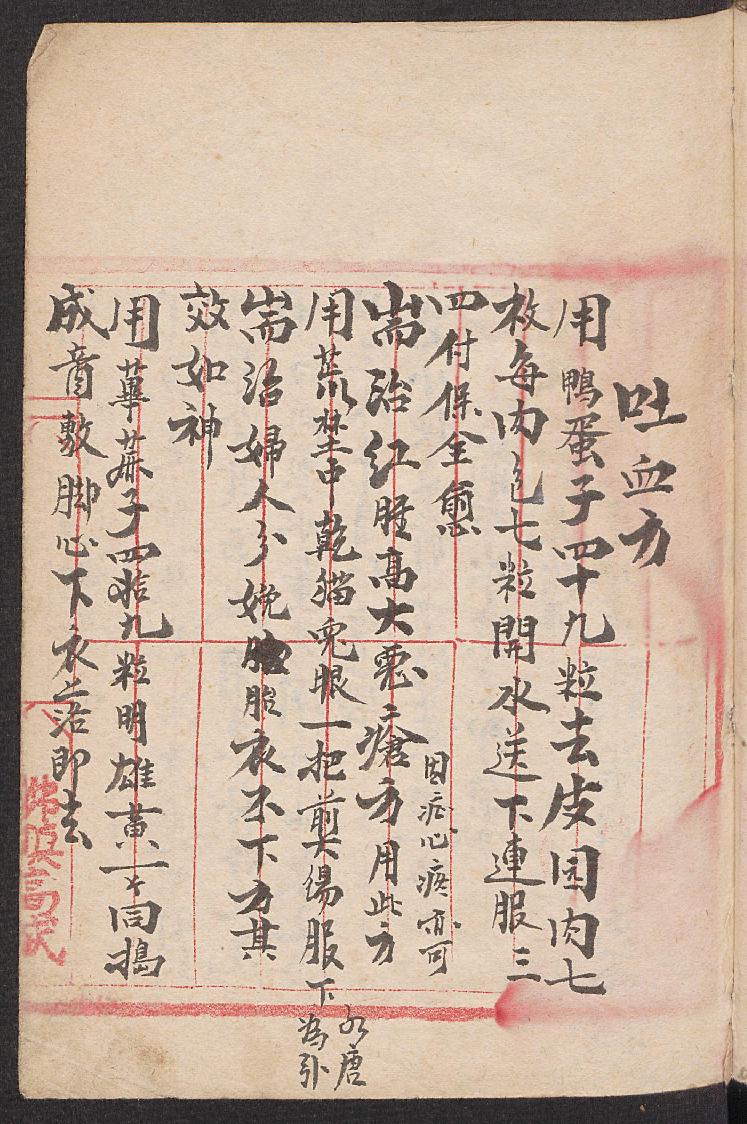 吐血方
用鴨蛋子四十九粒去皮圆肉七
枚每肉包七粒開水送下連服三
四付保全愈
耑治紅腫高大惡瘡方用此方
因症心疾亦可
用荒埜中乾猫兒眼一把煎湯服下
為引
耑治婦人分娩胎衣不下方其
效如神
用萆蔴子四拾九粒明雄黄一同搗
成膏敷脚心下衣上治即去